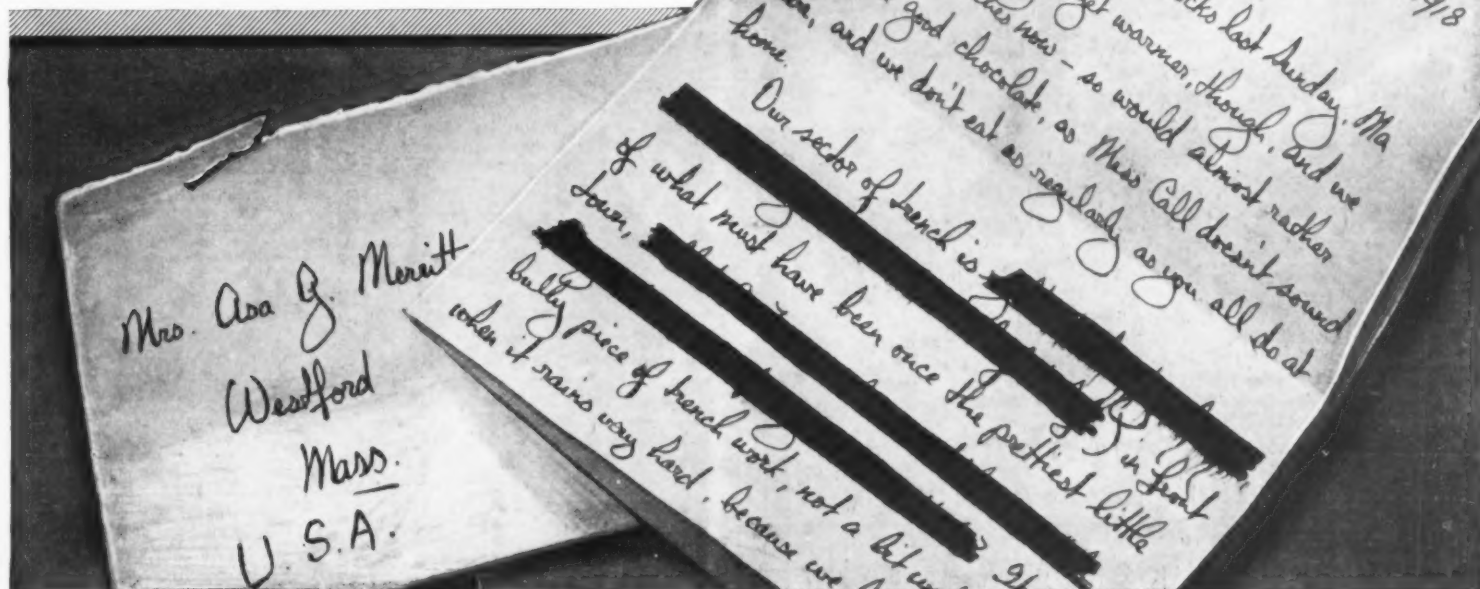 Mrs. Asa G. Merritt
Westford
Mass.
U.S.A.
/18
cks last Sunday. Ma
get warmer, though, and we
now – so would almost rather
good chocolate, as Mess Call doesn't sound
and we don't eat as regularly as you all do at
home.
Our sector of trench is
in front
of what must have been once the prettiest little
town,
It
bully piece of trench work, not a bit
when it rains very hard, because we